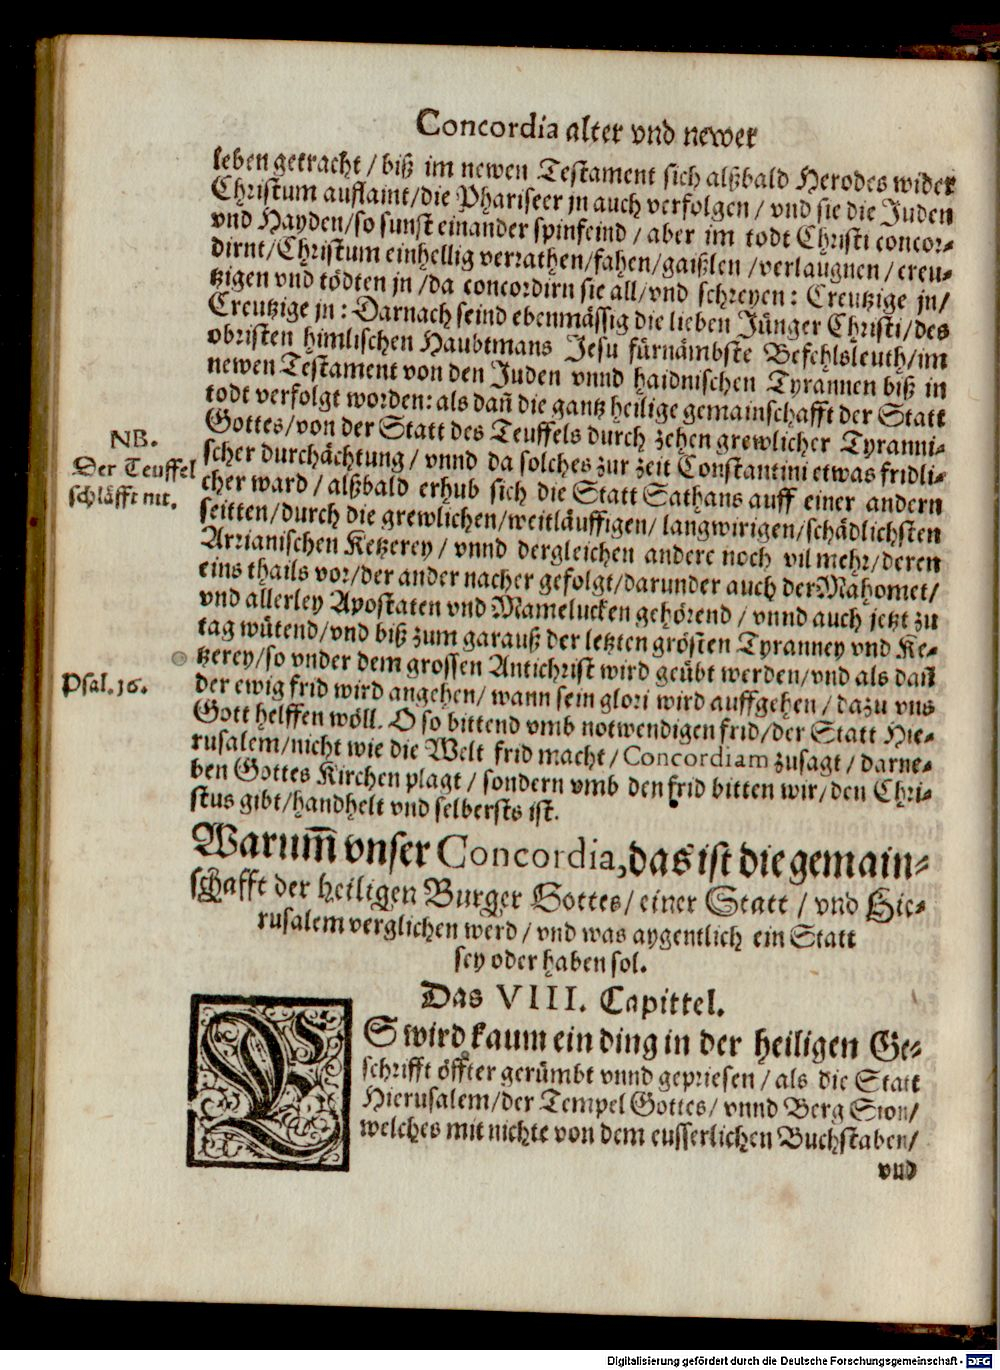 Concordia alter vnd newer
leben getracht / biß im newen Testament sich alßbald Herodes wider
Christum auflaint/die Phariseer jn auch verfolgen / vnd sie die Juden
vnd Hayden/so sunst einander spinfeind / aber im todt Christi concor-
dirnt/Christum einhellig verrathen/fahen/gaißlen /verlaugnen / creu-
tzigen vnd tödten jn /da concordirn sie all/vnd schreyen: Creutzige jn/
Creutzige jn : Darnach seind ebenmässig die lieben Jünger Christi/des
obristen himlischen Haubtmans Jesu fürnämbste Befehlsleuth/im
newen Testament von den Juden vnnd haidnischen Tyrannen biß in
todt verfolgt worden: als dañ die gantz heilige gemainschafft der Statt
Gottes/von der Statt des Teuffels durch zehen grewlicher Tyranni-
NB.
Der Teuffel
schläfft nit.
scher durchächtung / vnnd da solches zur zeit Constantini etwas fridli-
cher ward / alßbald erhub sich die Statt Sathans auff einer andern
seitten/durch die grewlichen/weitläuffigen/ langwirigen/schädlichsten
Arrianischen Ketzerey / vnnd dergleichen andere noch vil mehr/deren
eins thails vor/der ander nacher gefolgt/darunder auch der Mahomet/
vnd allerley Apostaten vnd Mamelucken gehörend / vnnd auch jetzt zu
tag wütend/vnd biß zum garauß der letzten grösten Tyranney vnd Ke-
tzerey/so vnder dem grossen Antichrist wird geübt werden/vnd als dañ
Psal.16.
der ewig frid wird angehen/ wann sein glori wird auffgehen / dazu vns
Gott helffen wöll. O so bittend vmb notwendigen frid/der Statt Hie-
rusalem/nicht wie die Welt frid macht / Concordiam zusagt / darne-
ben Gottes Kirchen plagt / sondern vmb den frid bitten wir/den Chri-
stus gibt/handhelt vnd selbersts ist.
Warum̃ vnser Concordia,das ist die gemain-
schafft der heiligen Burger Gottes/ einer Statt / vnd Hie-
rusalem verglichen werd / vnd was aygentlich ein Statt
sey oder haben sol.
Das VIII. Capittel.
ES wird kaum ein ding in der heiligen Ge-
schrifft öffter gerümbt vnnd gepriesen / als die Statt
Hierusalem/der Tempel Gottes/ vnnd Berg Sion/
welches mit nichte von dem eusserlichen Buchstaben/
vnd
Digitalisierung gefördert durch die Deutsche Forschungsgemeinschaft - DFG